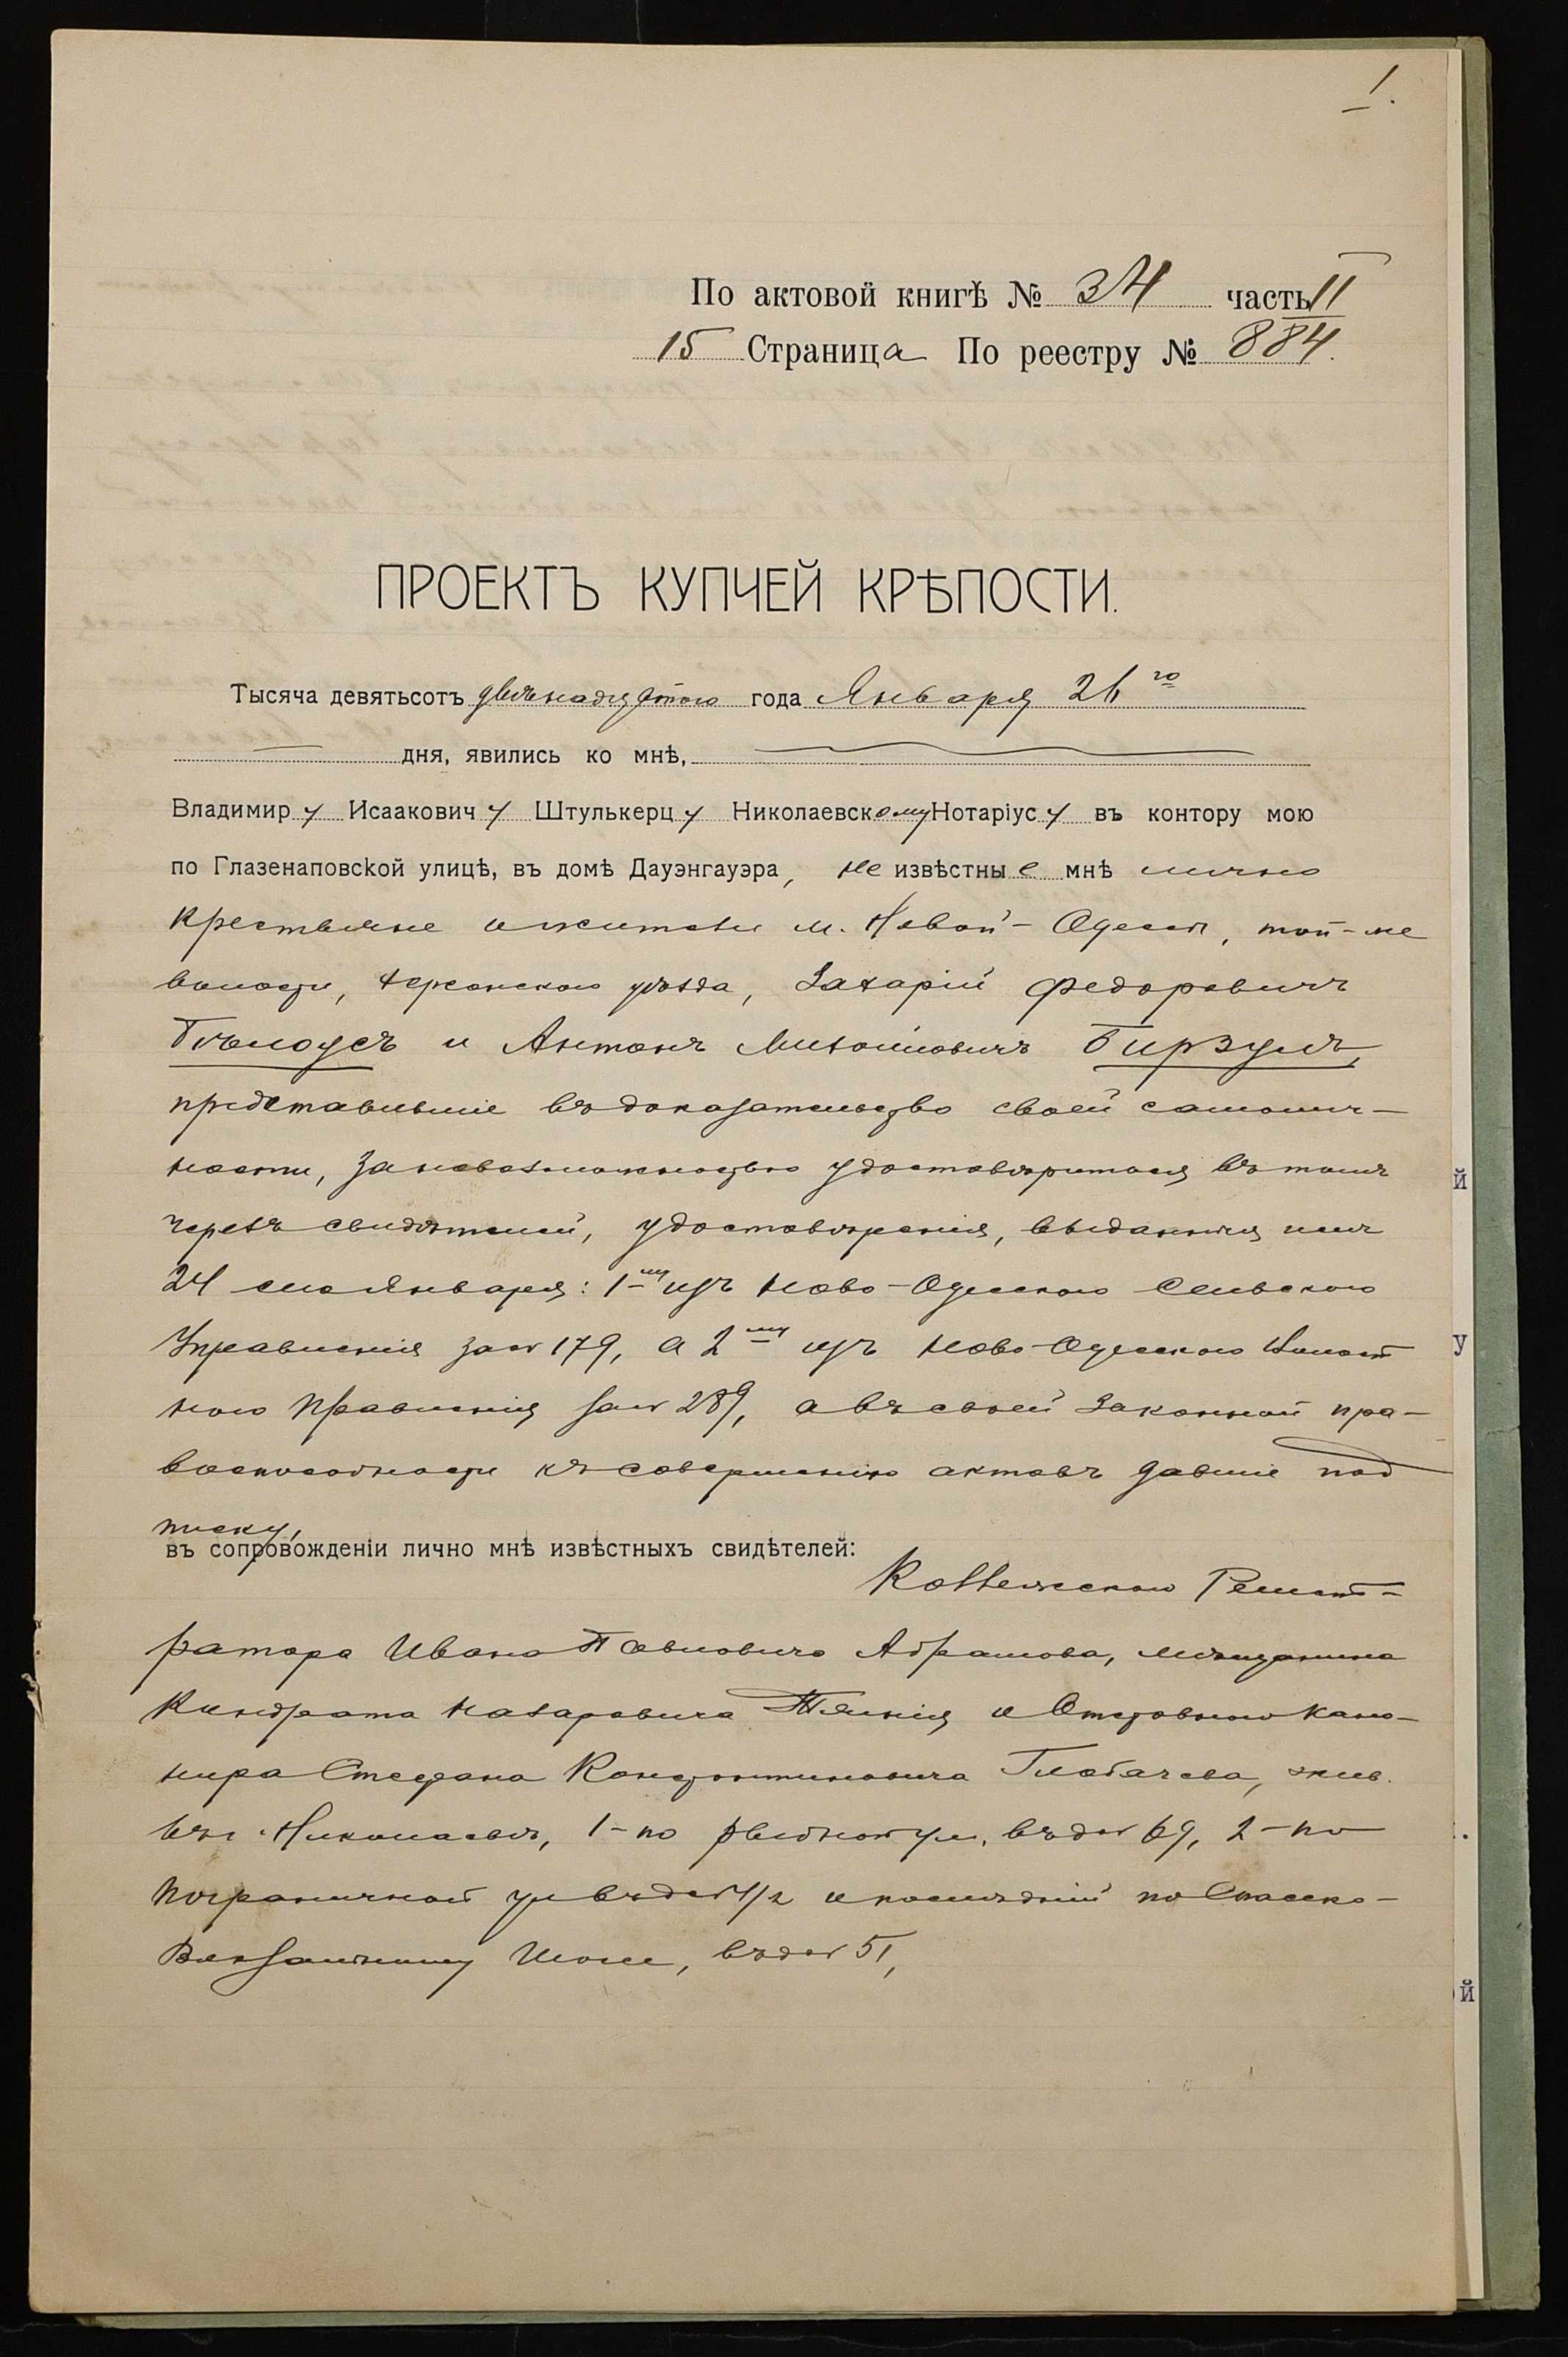 1.
По актовой книгѣ № 34 часть II
15 Страница По реестру № 884.
ПРОЕКТЪ КУПЧЕЙ КРѢПОСТИ.
Тысяча девятьсотъ двѣнадцятого года Января 26 го
дня, явились ко мнѣ,
Владимиру Исааковичу Штулькерцу Николаевскому Нотаріусу въ контору мою
по Глазенаповской улицѣ, въ домѣ Дауэнгауэра, не извѣстные мнѣ лично
крестьяне и жители м. Новой-Одессы, той-же
волости, Херсонскаго уѣзда, Захарій Федоровичъ
Бѣлоусъ и Антонъ Михайловичъ Бирзулъ,
представившіе въ доказательство своей самолич-
ности, за невозможностью удостовѣриться въ томъ
черезъ свидѣтелей, удостовѣренія, выданныя имъ
24 сего Января: 1-му изъ Ново-Одесского Сельского
Управленія за № 179, а 2му изъ Ново-Одесского Волост
ного Правленія за № 289, а въ своей законной пра-
воспособности къ совершенію актовъ давшіе под
писку,
въ сопровожденіи лично мнѣ извѣстныхъ свидѣтелей:
Коллежского Регист-
ратора Ивана Павловича Абрамова, мѣщанина
Кондрата Назаровича и Отставного Кано-
нира Стефана Константиновича Глобачева, жив.
въ г. Николаевѣ, 1-по Рыбной ул. въ д № 69, 2-по
Пограничной ул въ д № 1/2 и послѣдній по Спасско-
въ д № 51,
й
у
й